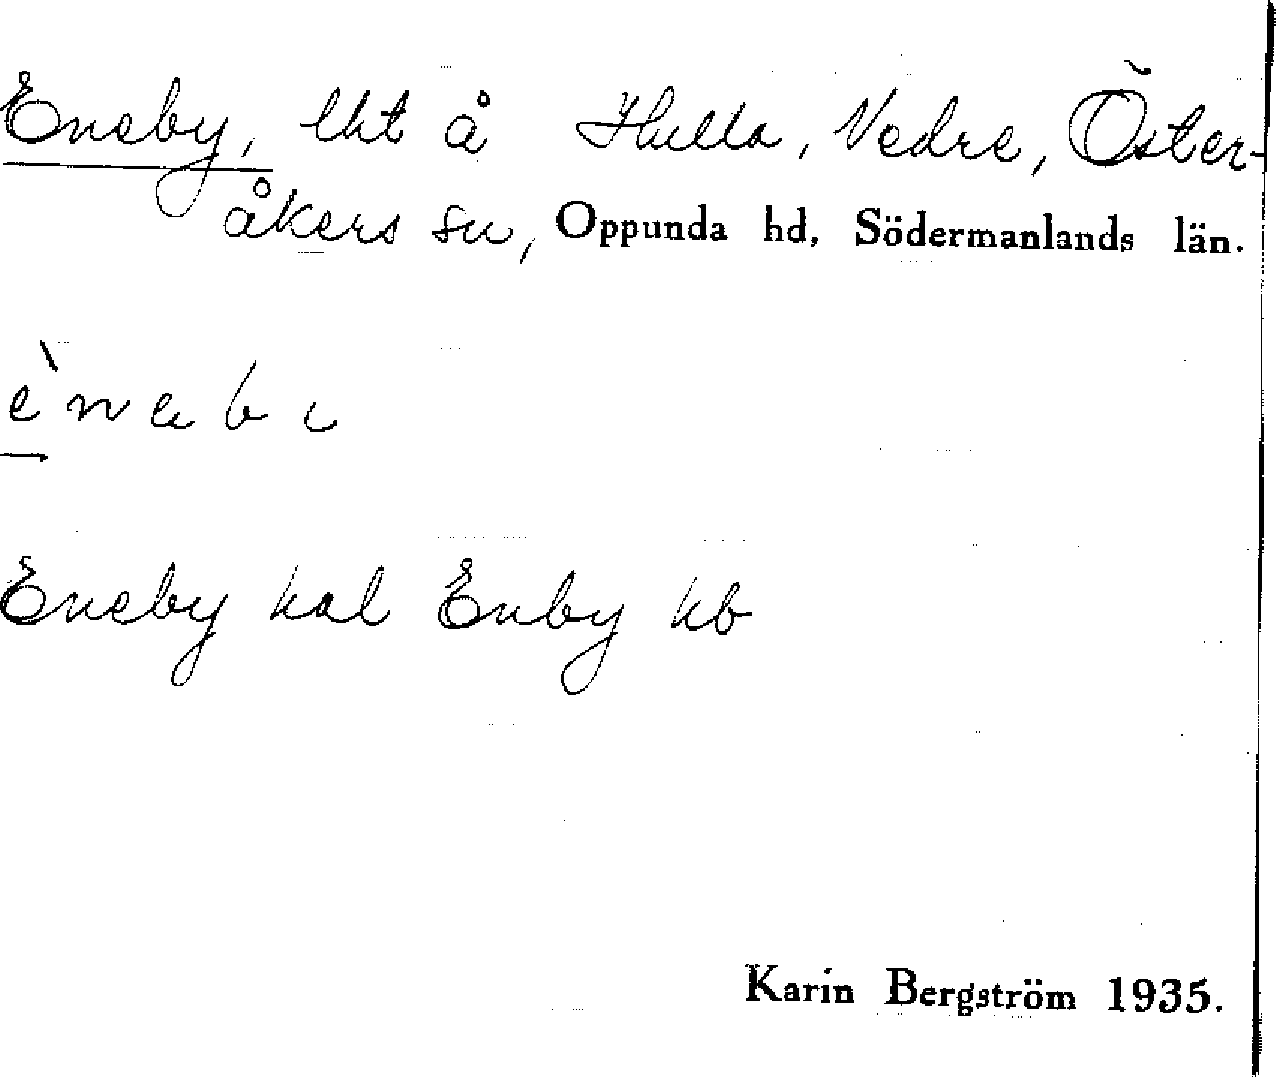 Eneby, lht å Hulla, Vedre, Öster-
åkers sn, Oppunda hd, Södermanlands län.
ènabi
Eneby hal Enby kb
Karin Bergström 1935.